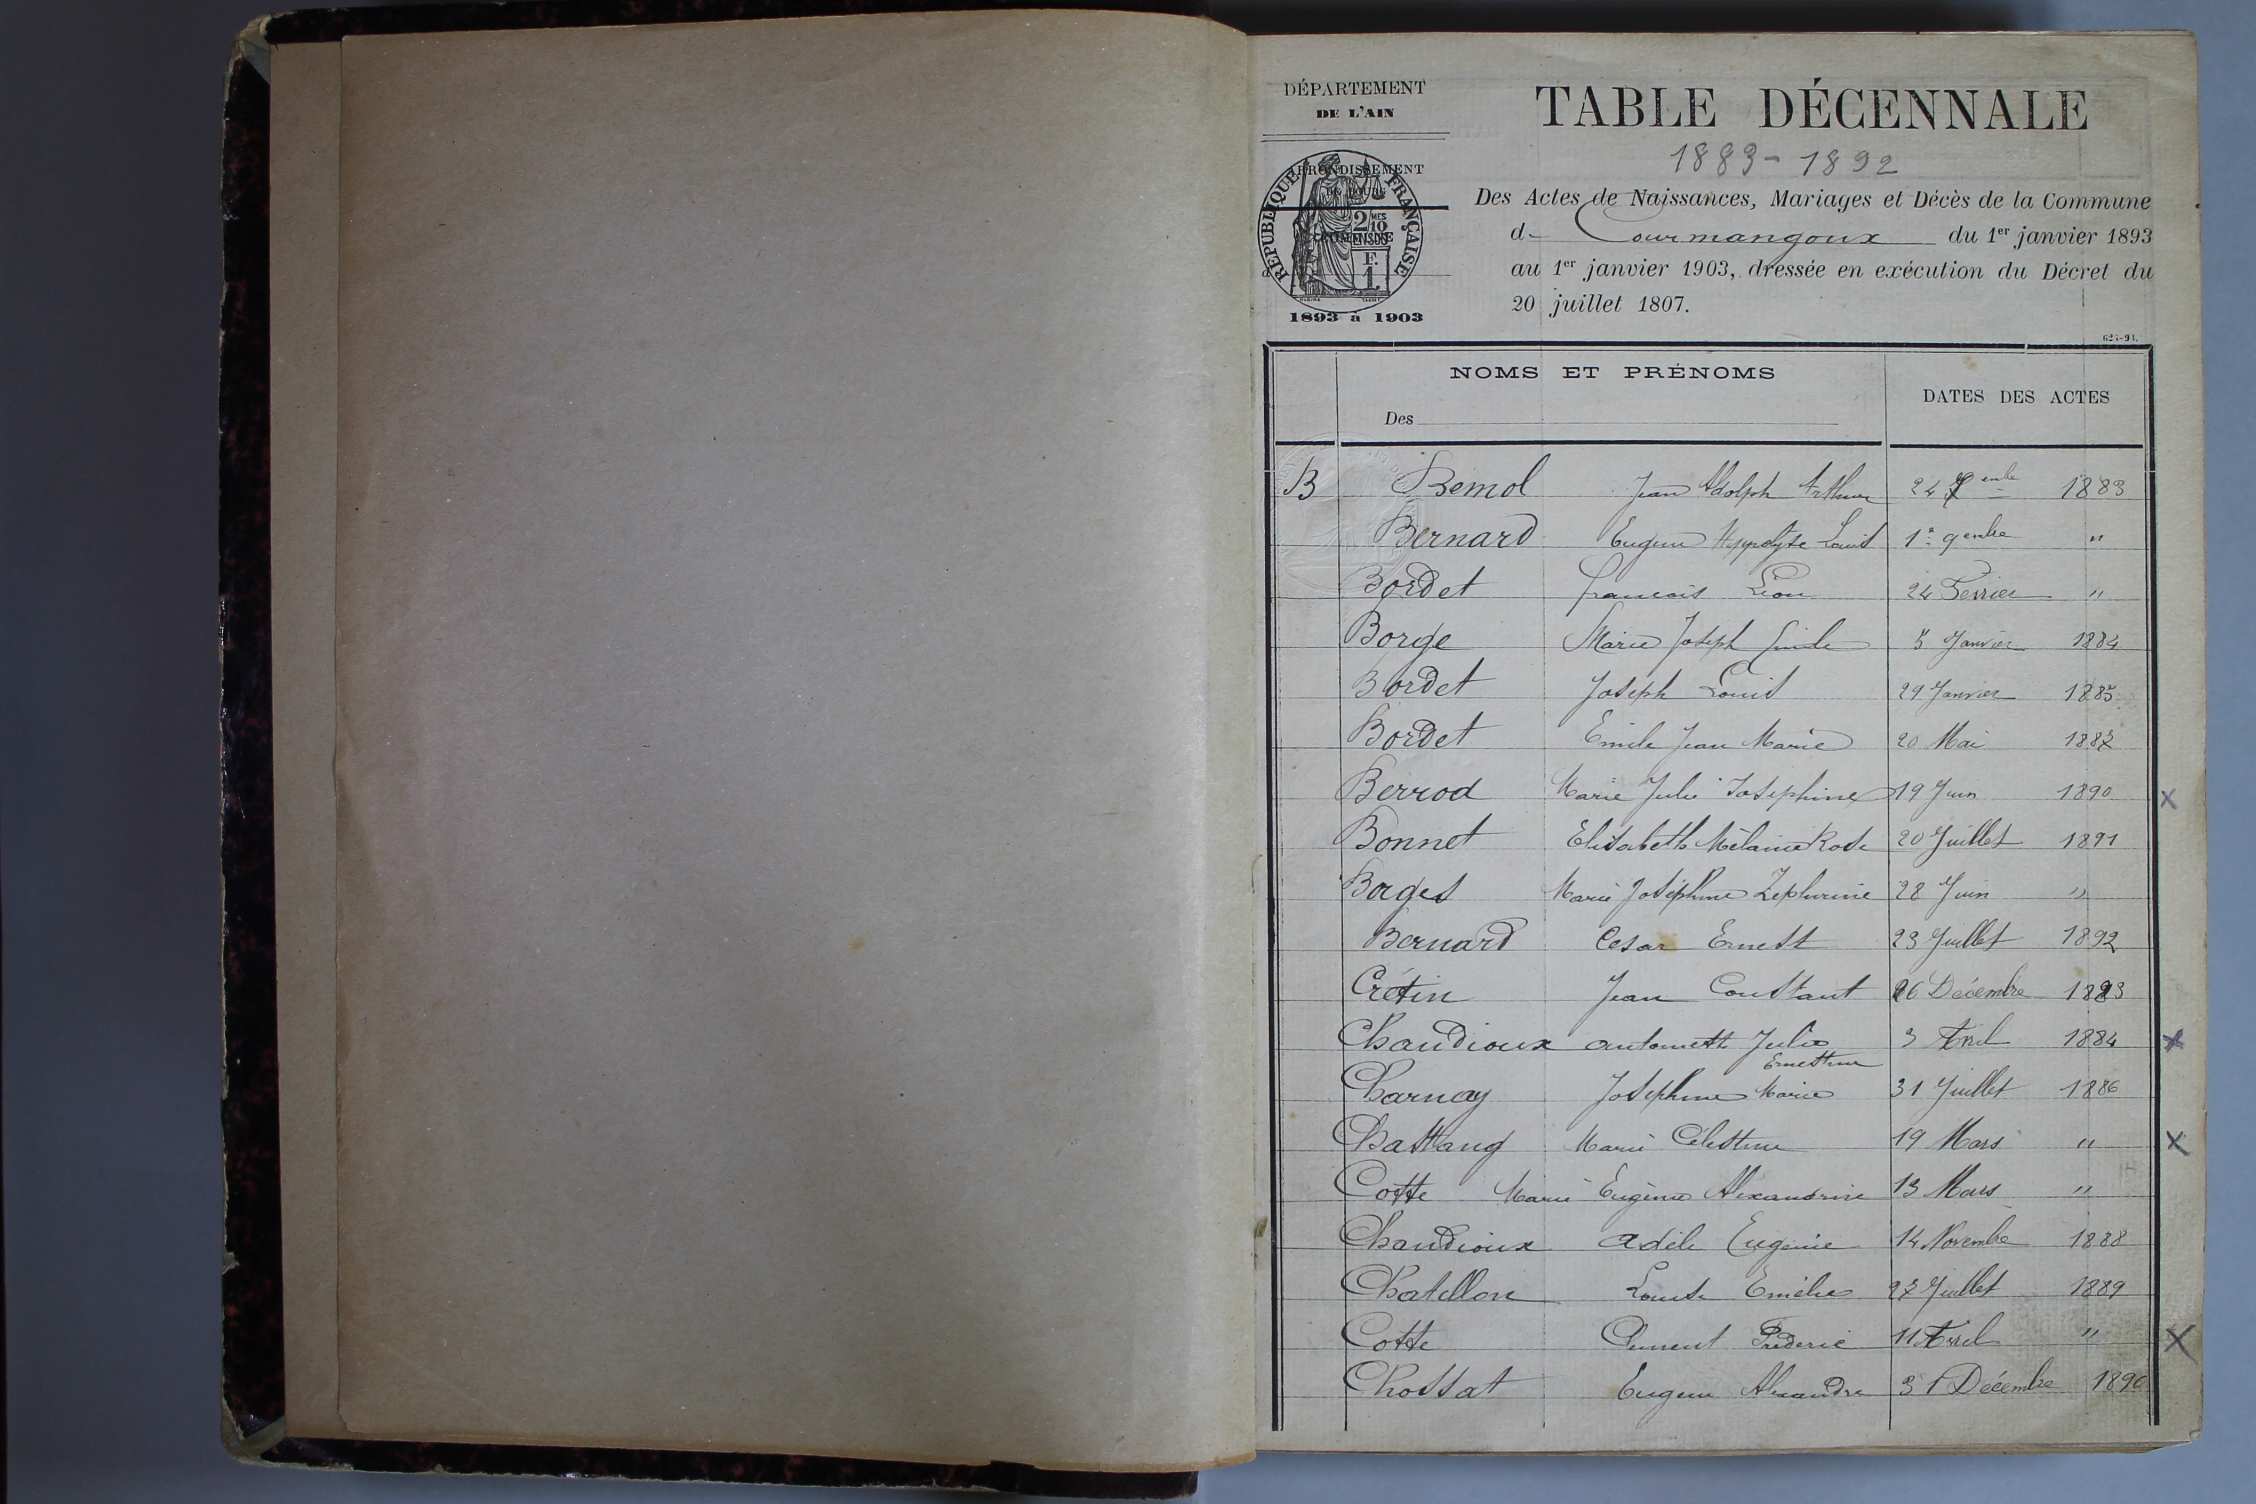 DÉPARTEMENT
DE L'AIN
ARRONDISSEMENT
RÉPUBLIQUE FRANÇAISE
2 MES
10
EN SUS
F.
1.
1893 à 1903
TABLE DÉCENNALE
1883 - 1892
Des Actes de Naissances, Mariages et Décès de la Commune
d- Courmangoux du 1er janvier 1893
au 1er janvier 1903, dressée en exécution du Décret du
20 juillet 1807.
NOMS ET PRÉNOMS
Des
DATES DES ACTES
B Bemol Jean Adolph Arthur 24 enbe 1883
Bernard Eugene Hyppolyte Louis 1er 9enbre "
Bordet francois Léon 24 Fevrier "
Borge Marie Joseph Emile 5 Janvier 1884
Bordet Joseph Louis 29 Janvier 1885
Bordet Emile Jean Marie 20 Mai
Berrod Marie Julie Josephine 19 Juin 1890 x
Bonnet Elisabeth Mélanie Rose 20 Juillet 1891
Borges Marie Joséphine Zephirine 28 Juin "
Bernard Cesar Ernest 23 Juillet 1892
Crétin Jean Constant 26 Décembre
Chaudioux antoinette Julie 3 Avril 1884 x
Ernestine
Charnay Josephine Marie 31 Juillet 1886
Chastang Marie Célestine 19 Mars " x
Cotte Marie Eugènie Alexandrine 13 Mars "
Chaudioux adèle Eugénie 14 Novembre 1888
Chatellon Louise Emélie 27 Juillet 1889
Cotte Clement Frederic 11 Avril " X
Chossat Eugene Alexandre 31 Décembre 1890